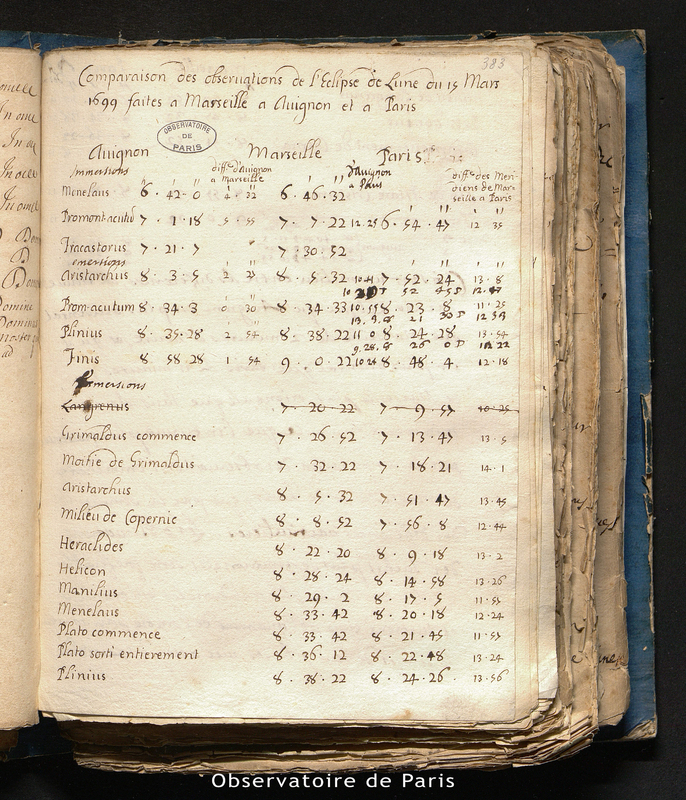 383
Comparaison des observations de l'Eclipse de Lune du 15 Mars
1699 faites a Marseille a Avignon et a Paris
OBSERVATOIRE DE PARIS
Avignon Marseille Paris
Immersions diffe. d'Avignon a Marseille d'Avignon a Paris diffe des Meridiens de Marseille a Paris
Menelaus 6 . 42 . 0 4 . 32 6 . 46 . 32
Promont acutu 7 . 1 . 18 5 . 55 7 . 7 . 22 12 . 25 6 . 54 . 47 12 35
Fracastorius 7 . 21 . 7 7 . 30 . 52
emersions
Aristarchus 8 . 3 . 5 2 27 8 . 5 . 32 10 41 7 . 52 . 24 13 . 8
52 12 . 47
Prom acutum 8 . 34 . 3 0 30 8 . 34 33 10 . 55 8 . 23 . 8 11 . 25
21 12 53
Plinius 8 . 35 . 28 2 . 54 8 . 38 . 22 11 0 8 . 24 . 28 13 . 54
9 . 28 . 8 26 0 D 22
Finis 8 58 28 1 . 54 9 . 0 . 22 10 28 8 . 48 . 4 12 . 18
Immersions
Langrenus 7 . 20 . 22 7 . 9 . 57 10 . 25
Grimaldus commence 7 . 26 . 52 7 . 13 . 47 13 . 5
Moitie de Grimaldus 7 . 32 . 22 7 . 18 . 21 14 . 1
Aristarchus 8 . 5 . 32 7 . 51 . 47 13 . 45
Milieu de Copernic 8 . 8 . 52 7 . 56 . 8 12 . 44
Heraclides 8 . 22 . 20 8 . 9 . 18 13 . 2
Helicon 8 . 28 . 24 8 . 14 . 58 13 . 26
Manilius 8 . 29 . 2 8 . 17 . 5 11 . 57
Menelaus 8 . 33 . 42 8 . 20 . 18 12 . 24
Plato commence 8 . 33 . 42 8 . 21 . 45 11 . 57
Plato sorti entierement 8 . 36 . 12 8 . 22 . 48 13 . 24
Plinius 8 . 38 . 22 8 . 24 . 26 13 . 56
Observatoire de Paris